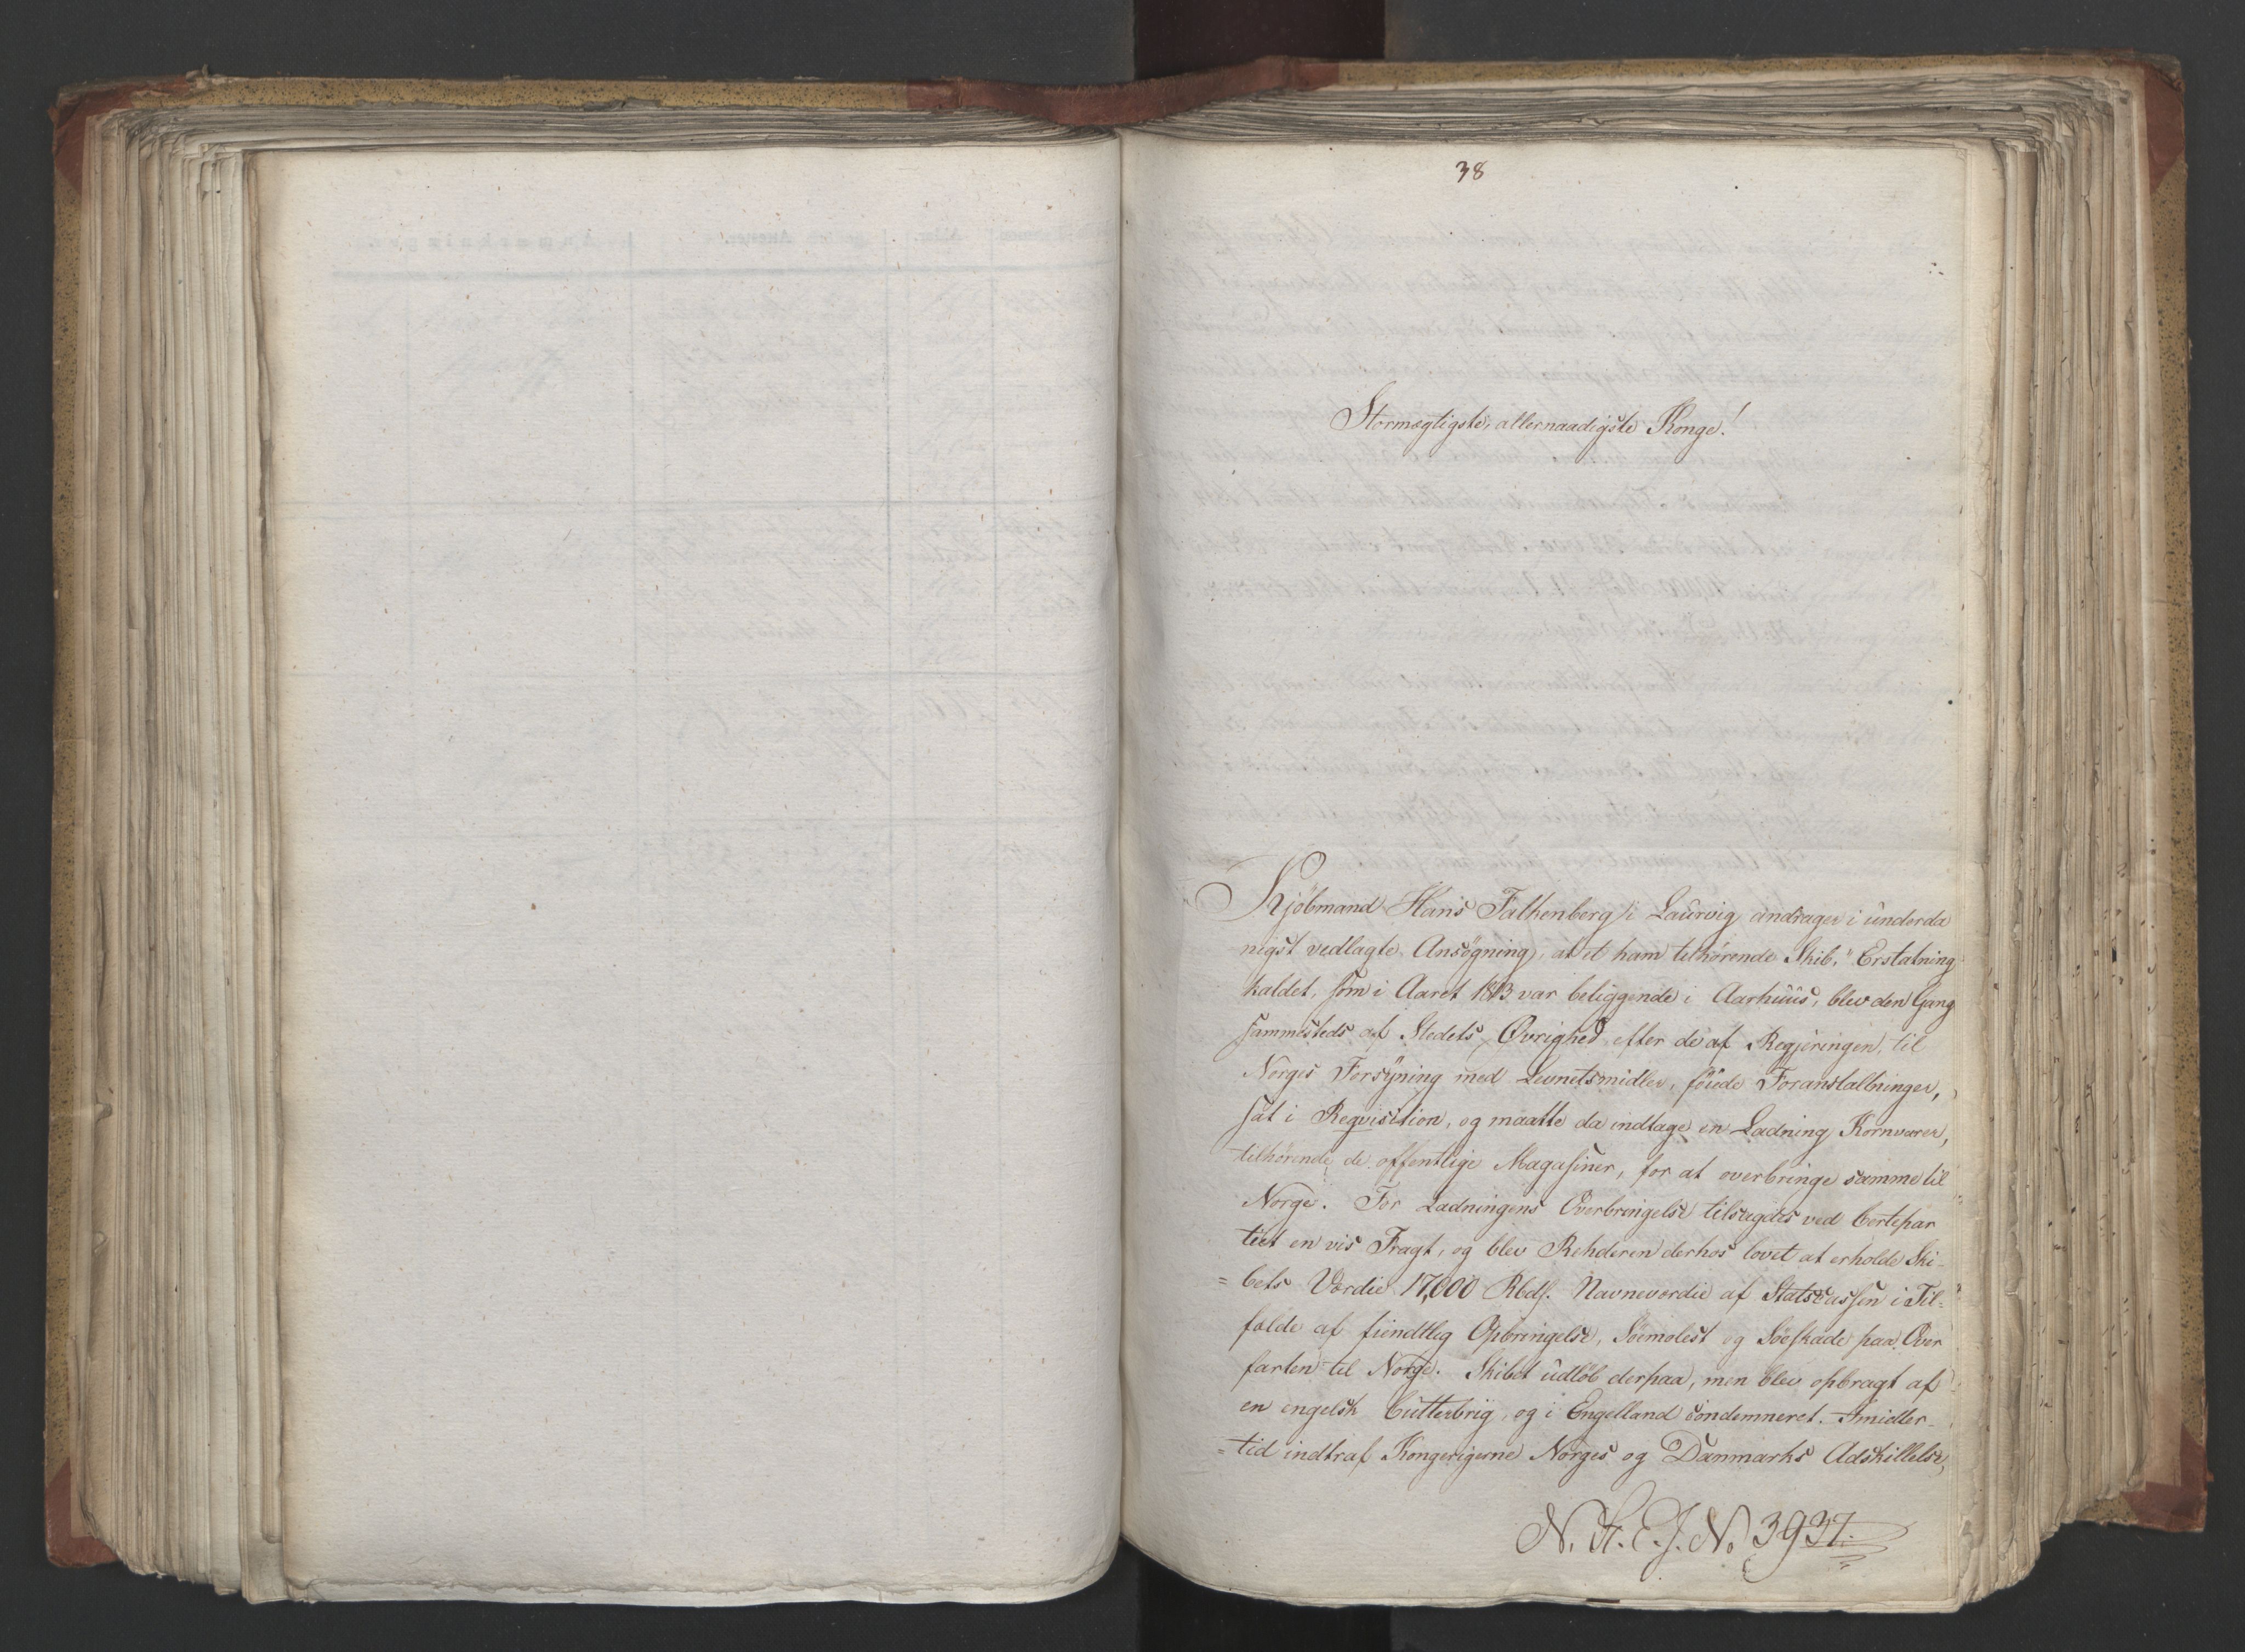 38
Stormægtigste, allernaadigste Konge!
Kjöbmand Hans Falkenberg i Laurvig andrager i underda
nigst vedlagte Ansögning, at et ham tilhörende Skib, "Erstatning
kaldet, som i Aaret 1813 var beliggende i Aarhuus, blev den Gang
sammesteds af Stedets Øvrighed efter de af Regjeringen, til
Norges Forsyning med Levnetsmidler, föiede Foranstaltninger,
sat i Reqvisition, og maatte da indtage en Ladning Kornvarer,
tilhörende de offentlige Magasiner, for at overbringe samme til
Norge. For Ladningens Overbringelse tilsagdes ved Certepar
tiet en vis Fragt, og blev Rehderen derhos lovet at erholde Ski-
=bets Værdie 17,000 Rbd. Navneværdie af Statscassen i Til=
fælde af fiendtlig Opbringelse, Söemolest og Söeskade paa Over
farten til Norge. Skibet udlöb derpaa, men blev opbragt af
en engelsk Cutterbrig, og i Engelland condemneret. Imidler-
=tid indtraf Kongerigerne Norges og Danmarks Adskillelse,
N. St. C. J. No 3937.